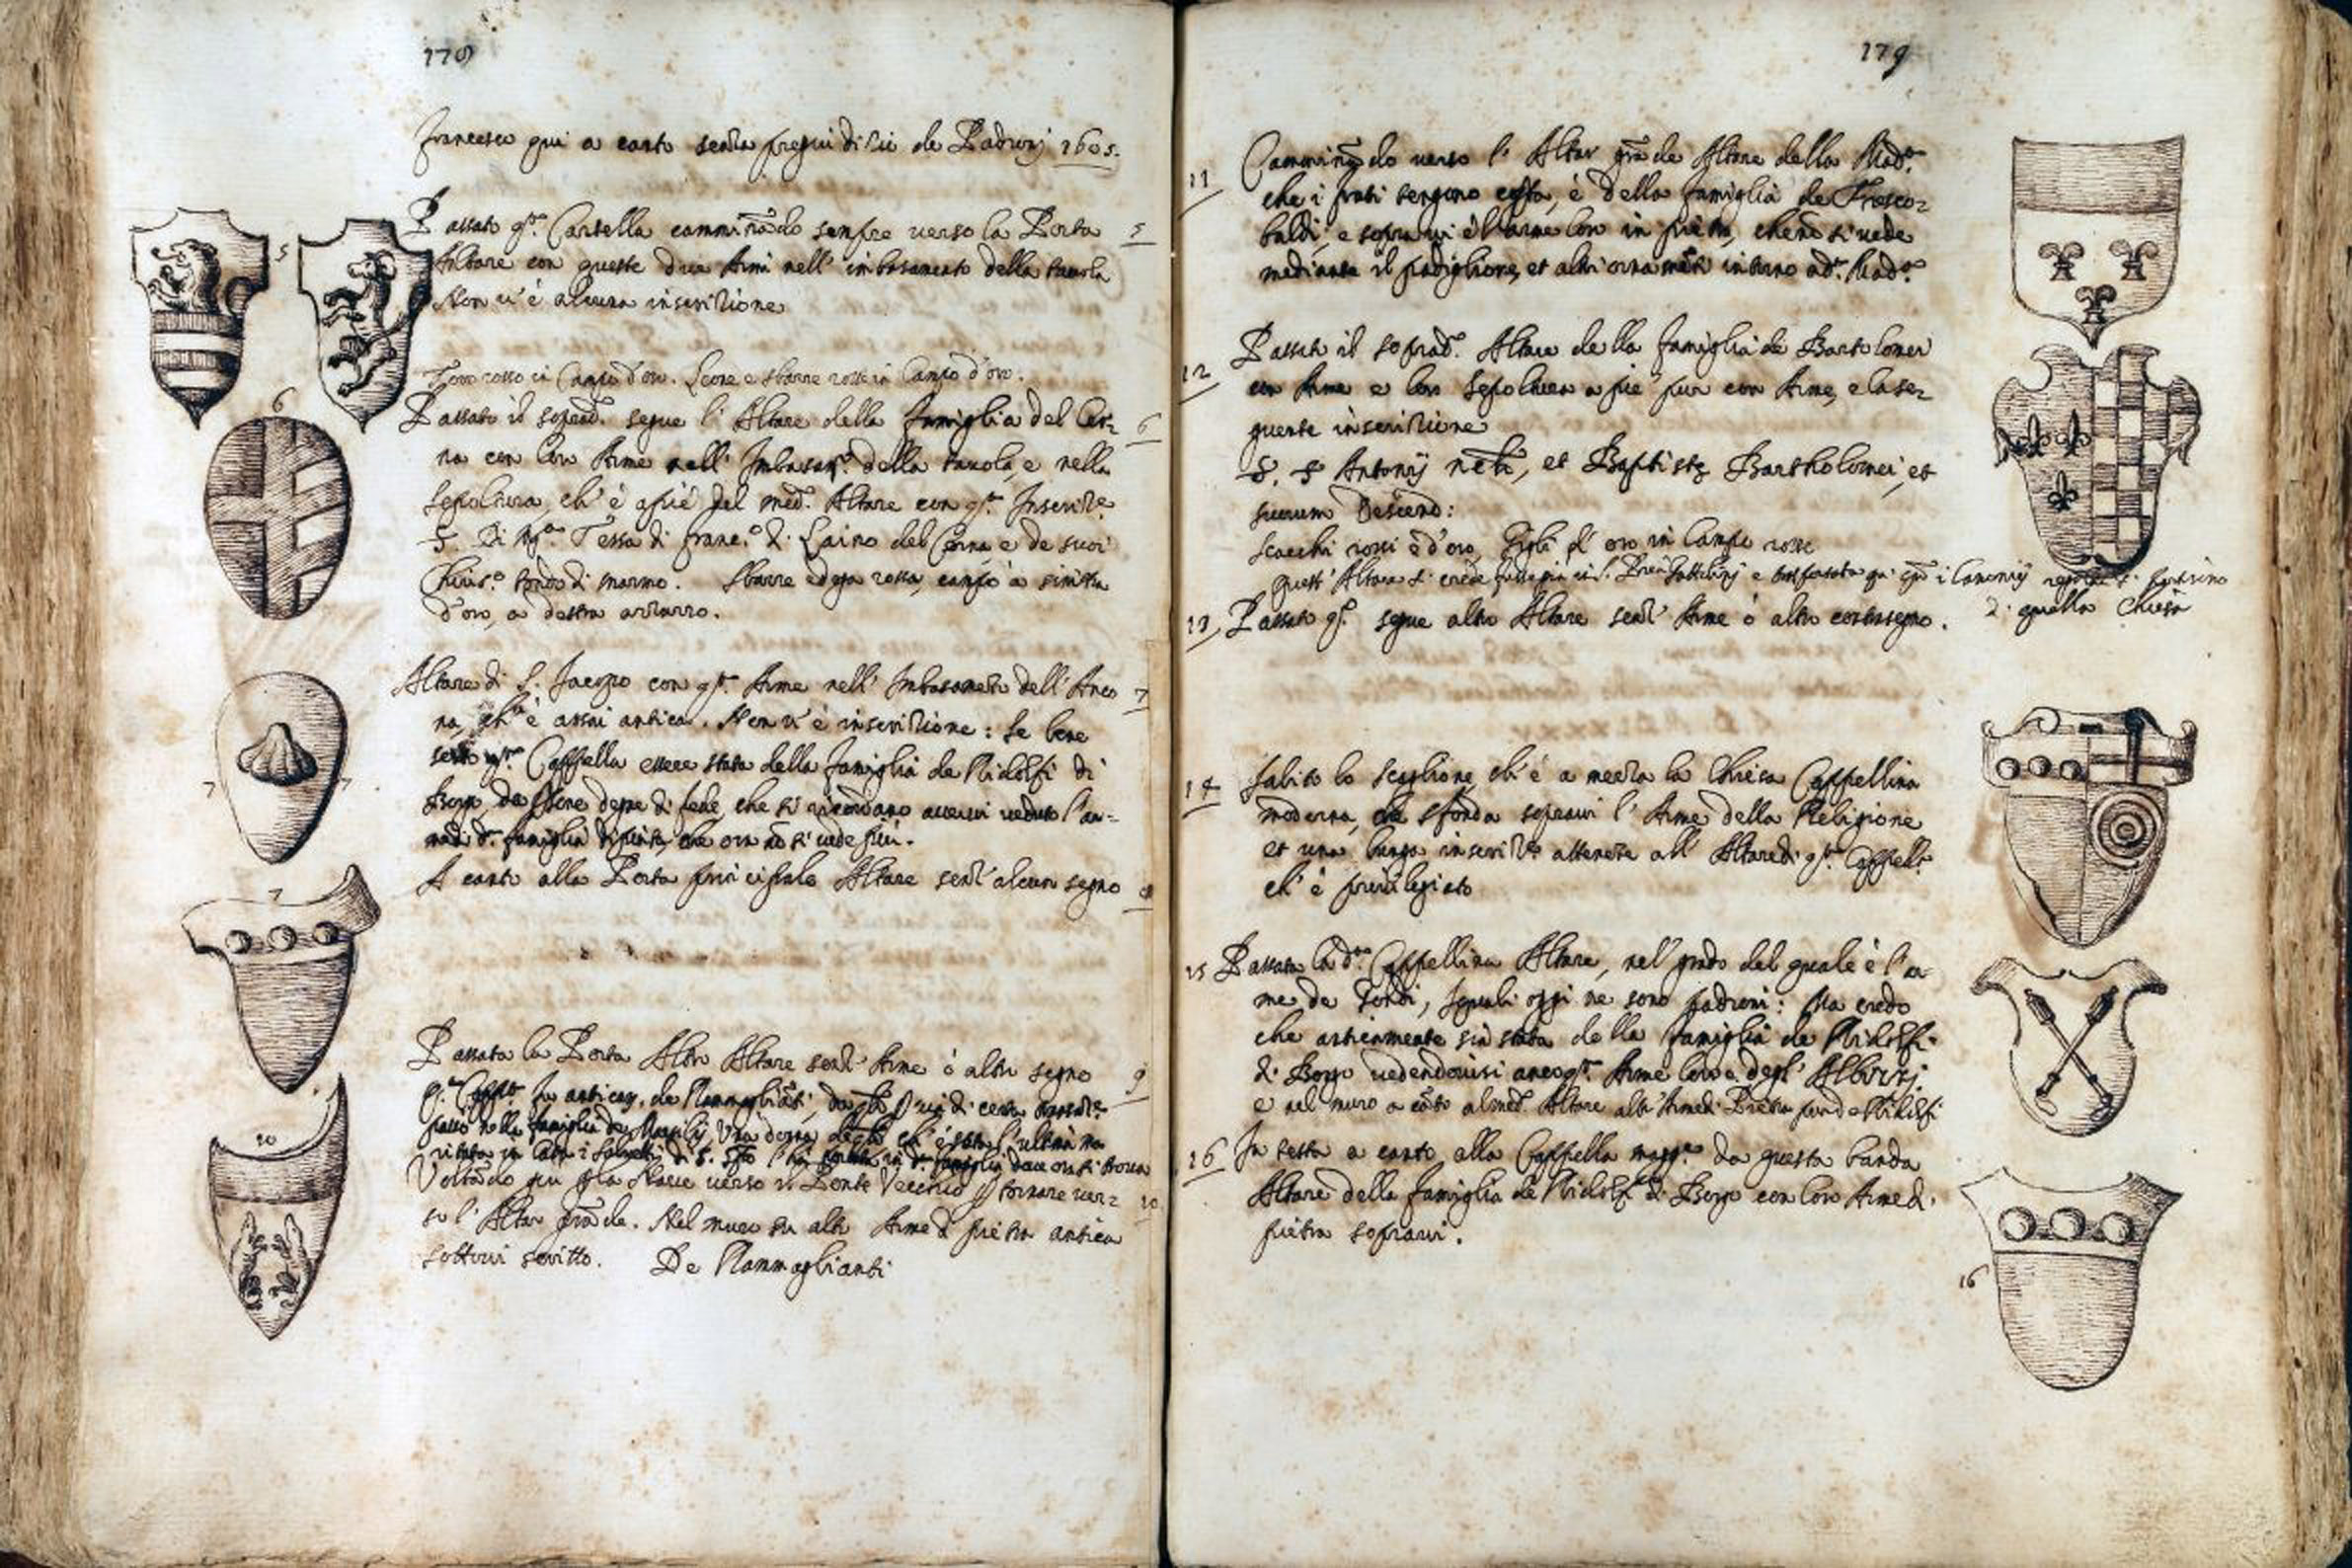 178
Francesco qui a canto senza pregiuditio de Padroni 1605.
Passato q.ta Cappella camminādo sempre verso la Porta 5
Altare con queste due Armi nell' imbasamento della tavola
Non v'è alcuna inscritione
5
rosso in Campo d'oro. Leone e sbarre rosse in Campo d'oro.
6
Passato il soprad. segue l' Altare della famiglia del Cer= 6
na con loro Arme nell' Imbasam.to della tavola, e nella
Sepoltura, ch' è a piè del med. Altare con q.ta Inscritt.e
S. Di M.a Tessa di Franc.o d. Laino del Cerna e de suoi
Chius.o tondo di marmo. Sbarre rossa, campo a sinistra
d'oro, a destra azzurro.
Altare di S. Jacopo con q.ta Arme nell' Imbasameto dell' Anco 7
na, ch' è assai antica. Non v' è inscritione: Se bene
q.ta Cappella essere stata della famiglia de Ridolfi di
Borgo, da persone degne di fede, che si ricordano avervi veduto l'ar=
me di d.a famiglia dipinta, che ora nō si vede più.
7 7
A canto alla Porta principale Altare senz' alcun segno 8
7
Passata la Porta Altro Altare senz' Arme o altro segno 9
q.a Capp.a fu anticam. de Rammagliāti, da
passò nella famiglia de Marsilij, Una donna ch' è stata l' ultima ma
ritata in Casa i di S. Sp.o l' ha in d.a famiglia dove ora si trova
Voltādo p la Nave verso il Ponte Vecchio p tornare ver= 10
so l' Altar grāde. Nel muro su alto Arme di pietra antica
sottovi scritto. De Rammaglianti
10
179
11 Camminādo verso l' Altar grāde Altare della Mad.a
che i frati tengono essa, è della famiglia de Fresco=
baldi, e sopra vi è l'arme loro in pietra, che nō si vede
mediante il padiglione, et altri ornamēti intorno a d.a Mad.a
12 Passato il soprad. Altare della famiglia de Bartolomei
con Arme e loro Sepoltura a piè pur con Arme, e la se=
guente inscritione
S. S Antonij et Baptistę Bartholomei, et
suorum Descend:
Scacchi rossi e d'oro, Gigli d' oro in Campo rosso
Quest' Altare si crede fusse pia i Canonij
d. quella Chiesa
13 Passato q.o segue altro Altare senz' Arme ò altro contrasegno.
14 Salito lo Scaglione ch' è a mezza la Chiesa Cappellina
moderna, che sfonda sopravi l' Arme della Religione
et una lunga inscritt.e attenete all' Altare di q.ta Cappell.a
ch' è privilegiato
15 Passata la d.a Cappellina Altare, nel grado del quale è l' ar
me de Tordi, i quali oggi ne sono padroni: Ma credo
che anticamente sia stata della famiglia de Ridolfi
di Borgo vedendovisi anco q.ta Arme loro e degl' Albizzj
e nel muro a cāto al med. Altare alt' Arme di Pietra pur de Ridolfi
16 In testa a canto alla Cappella magg.e da questa banda
Altare della famiglia de Ridolfi di Borgo con loro Arme di
pietra sopravi.
16